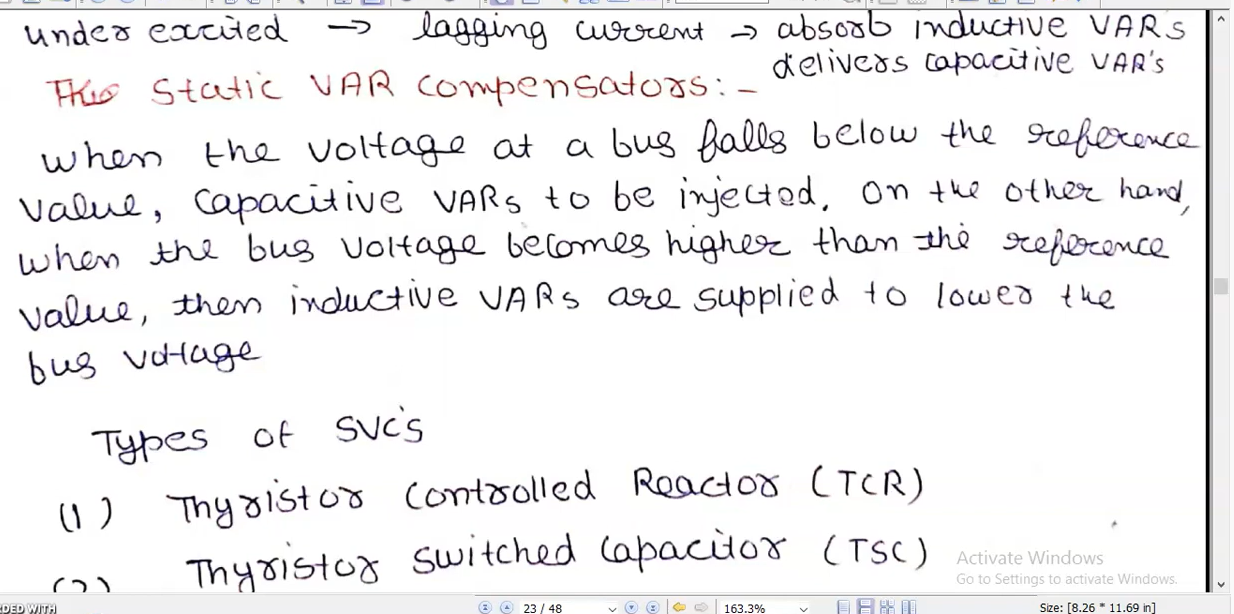 under excited → lagging current → absorb inductive VARs
delivers capacitive VAR's
Static VAR Compensators:-
when the voltage at a bus falls below the reference
value, capacitive VARs to be injected. On the other hand,
when the bus voltage becomes higher than the reference
value, then inductive VARs are supplied to lower the
bus voltage
Types of SVC's
(1) Thyristor Controlled Reactor (TCR)
(2) Thyristor switched capacitor (TSC)
Activate Windows
Go to Settings to activate Windows.
RDED WITH
23 / 48
163.3%
Size: [8.26 * 11.69 in]